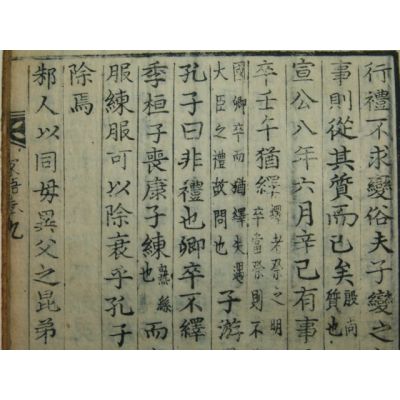 行禮不求變俗夫子變之
事則從其質而已矣殷尚質也
宣公八年六月辛巳有事
卒壬午猶繹繹者祭之明卒當祭則不
國卿卒而猶繹失遇大臣之禮故問也子游
孔子曰非禮也卿卒不繹
季桓子喪康子練也而
服練服可以除衰乎孔子
除焉
邾人以同母異父之昆弟
家語卷九